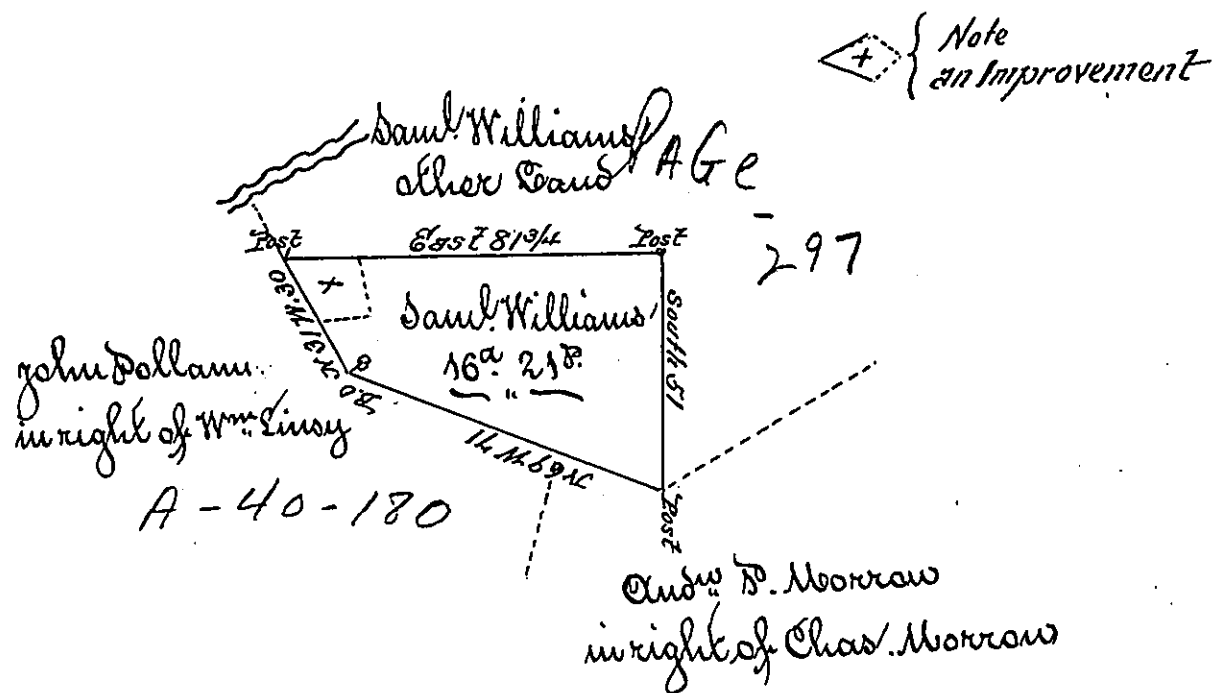 Note
an Improvement
Saml. Williams
other Land
PAGe
297
Post
East 81 3/4
Post
N 31 W. 30
+
Saml. Williams
16a. " 21p.
South 51
B.O
N 69 W 71
Post
John Pollann
in right of Wm. Linsy
A-40-180
Andw. P. Morrow
in right of Chas. Morrow